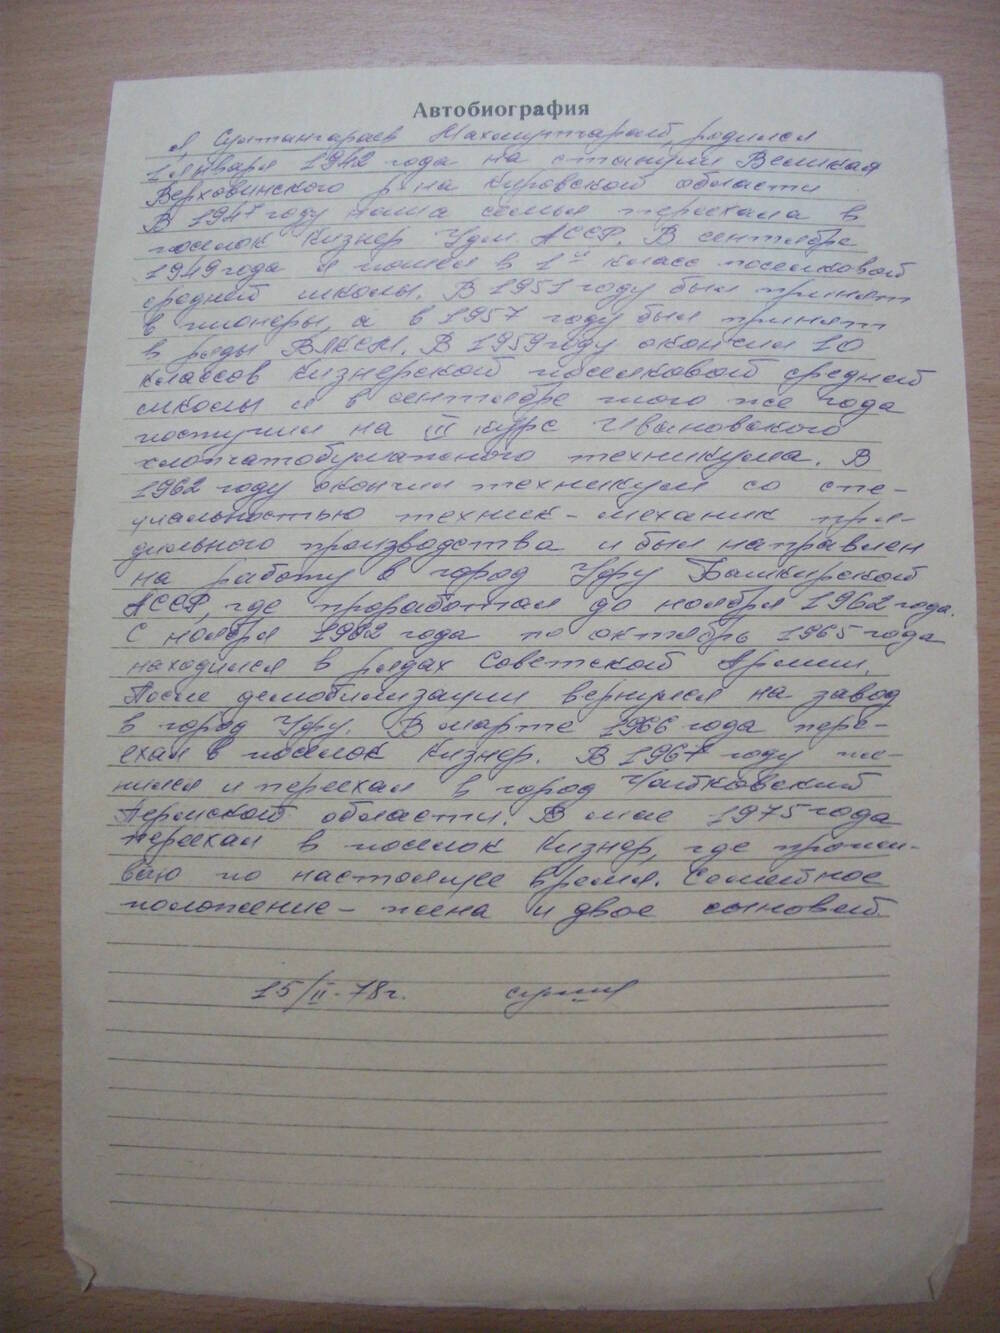 Автобиография
Я Султангараев Махмутгарай, родился
1 января 1942 года на станции Великая
Верховинского р-на Кировской области
В 1947 году наша семья переехала в
поселок Кизнер Удм. АССР. В сентябре
1949 года я пошел в 1й класс поселковой
средней школы. В 1951 году был принят
в пионеры, а в 1957 году был принят
в ряды ВЛКСМ. В 1959 году окончил 10
классов Кизнерской поселковой средней
школы и в сентябре того же года
поступил на III курс Ивановского
хлопчатобумажного техникума. В
1962 году окончил техникум со спе-
циальностью техник-механик пря-
дильного производства и был направлен
на работу в город Уфу Башкирской
АССР, где проработал до ноября 1962 года.
С ноября 1962 года по октябрь 1965 года
находился в рядах Советской Армии.
После демобилизации вернулся на завод
в город Уфу. В марте 1966 года пере-
ехал в поселок Кизнер. В 1967 году же-
нился и переехал в город Чайковский
Пермской области. В мае 1975 года
переехал в поселок Кизнер, где прожи-
ваю по настоящее время. Семейное
положение - жена и двое сыновей
15/II-78г.